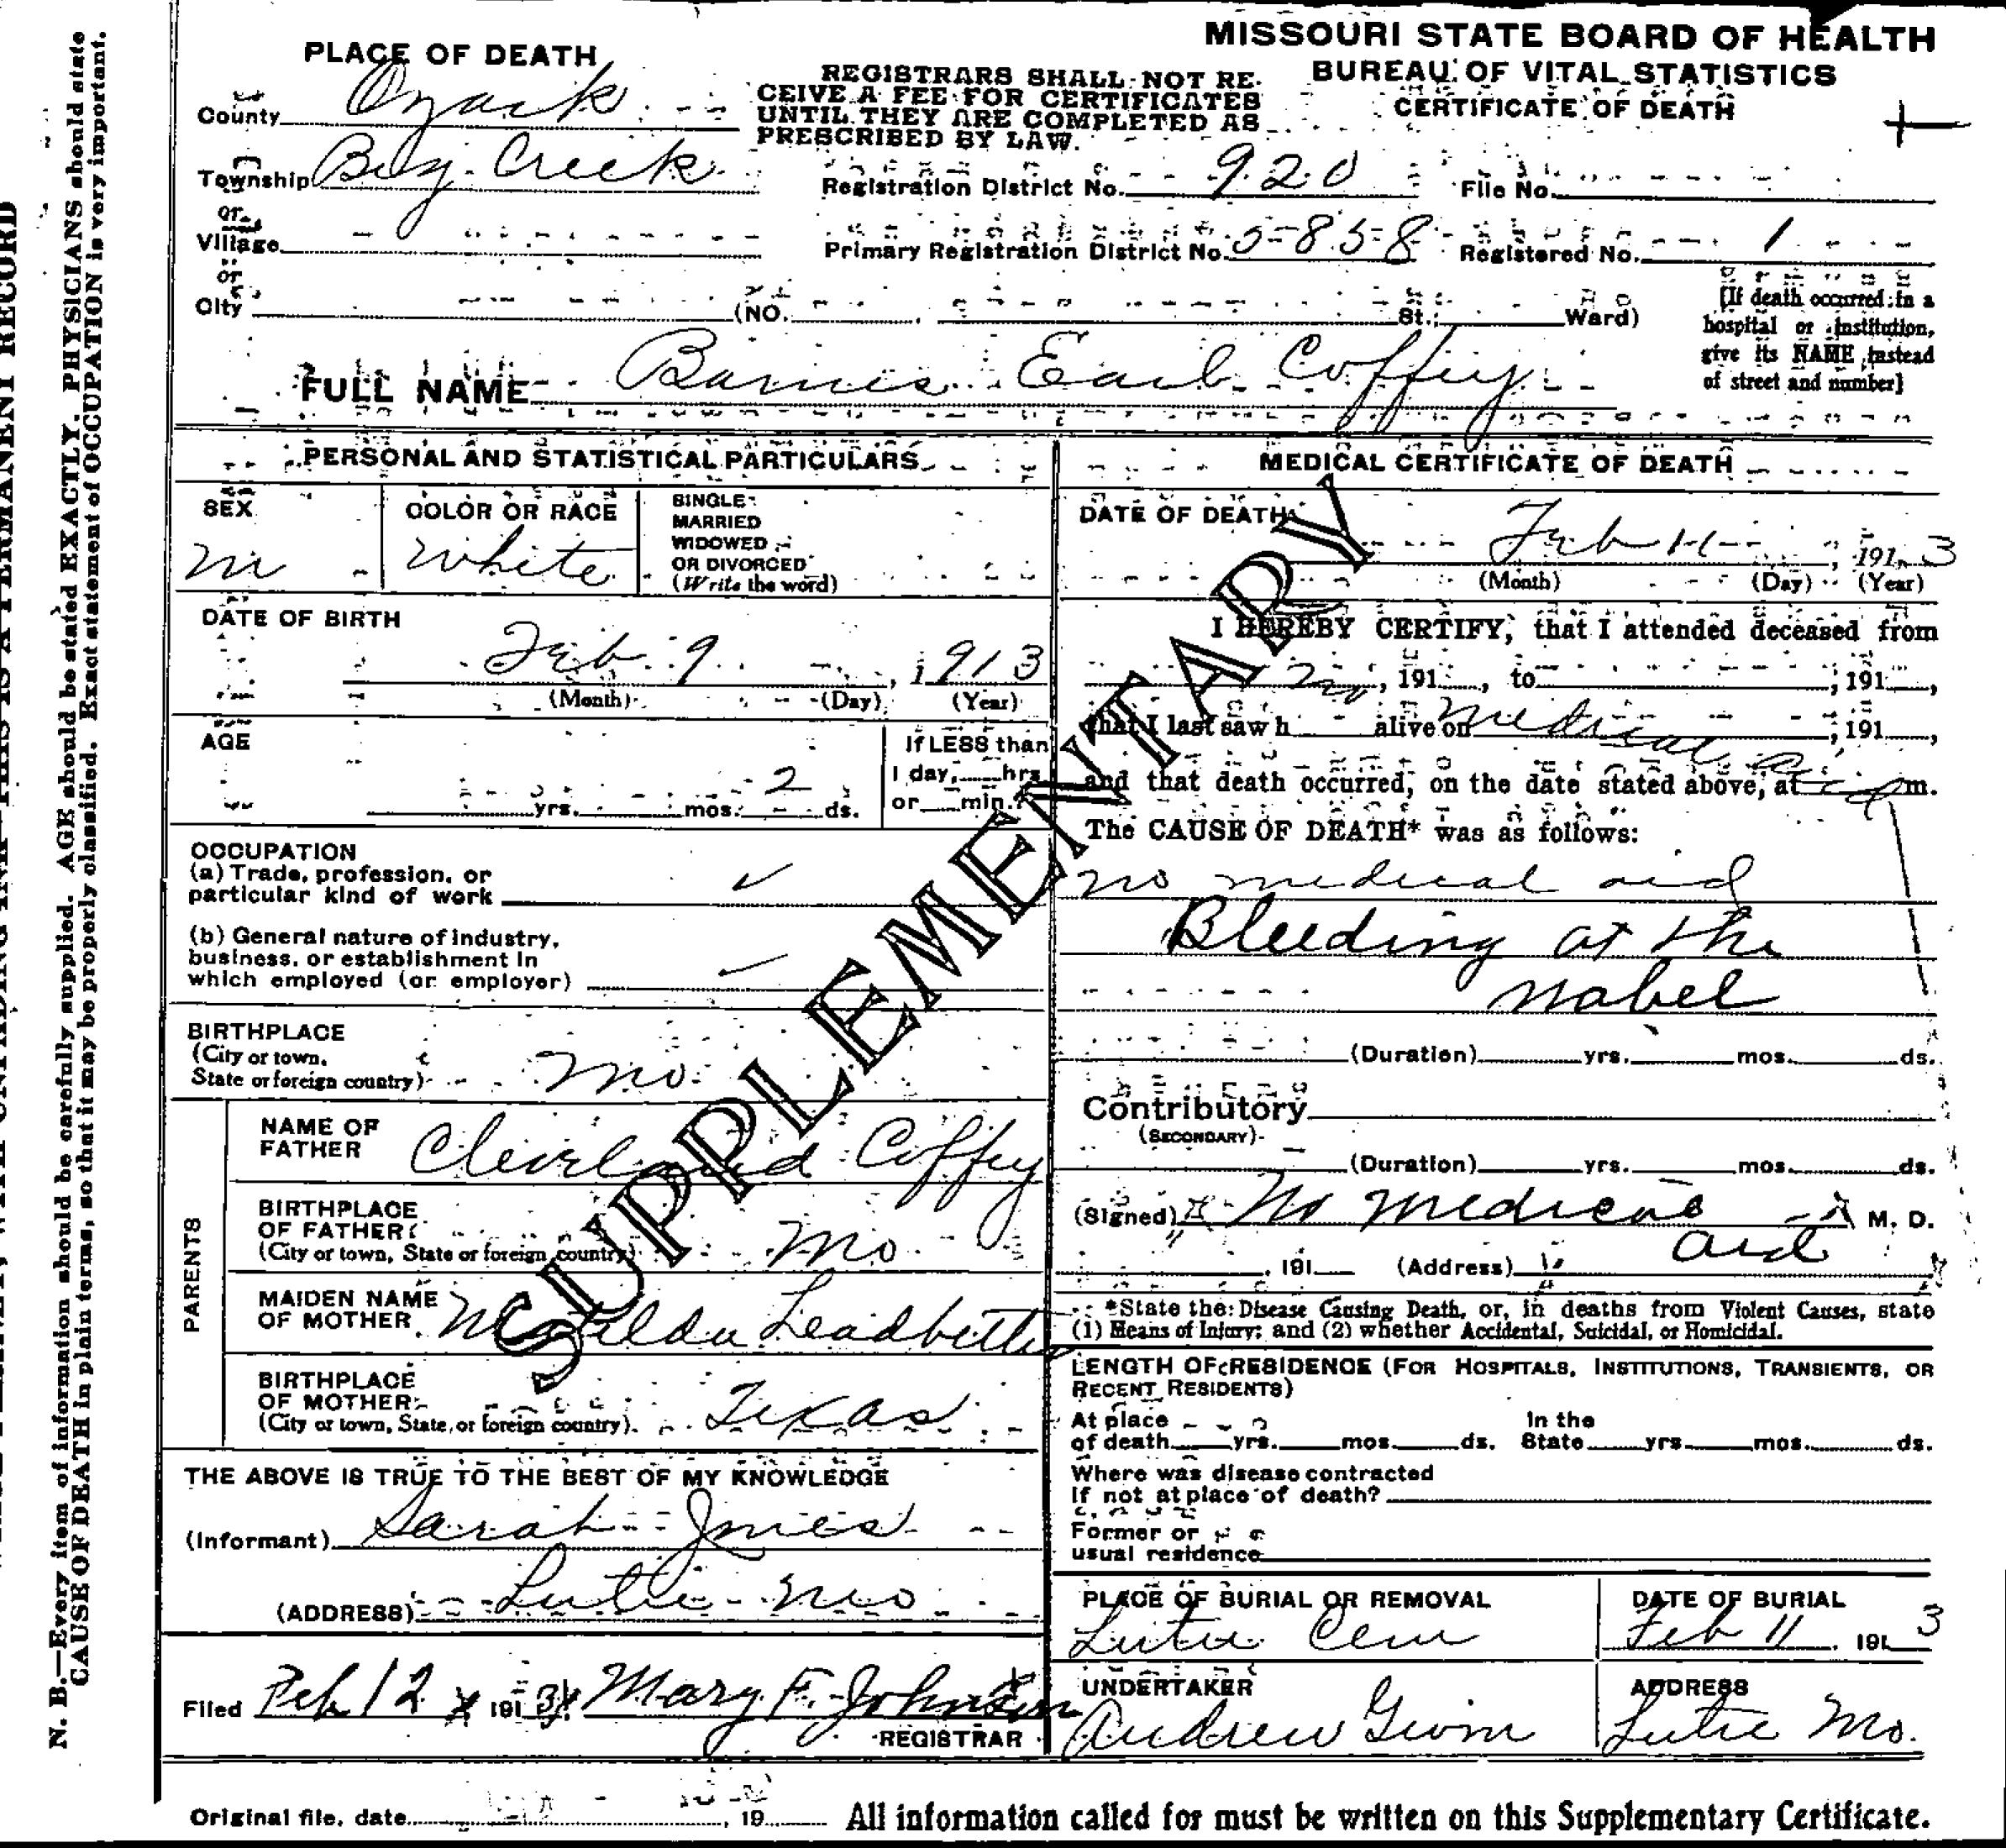 MISSOURI STATE BOARD OF HEALTH
BUREAU OF VITAL STATISTICS
CERTIFICATE OF DEATH
PLACE OF DEATH
County Ozark
Township Big Creek
or
Village
or
City (NO. St.; Ward)
REGISTRARS SHALL NOT RE-
CEIVE A FEE FOR CERTIFICATES
UNTIL THEY ARE COMPLETED AS
PRESCRIBED BY LAW.
Registration District No. 920 File No.
Primary Registration District No. 5858 Registered No. 1
[If death occurred in a
hospital or institution,
give its NAME instead
of street and number]
FULL NAME Earl Coffey
PERSONAL AND STATISTICAL PARTICULARS
SEX
m
COLOR OR RACE
White
SINGLE
MARRIED
WIDOWED
OR DIVORCED
(Write the word)
DATE OF BIRTH
Feb 9, 1913
(Month) (Day) (Year)
AGE
yrs. mos. 2 ds.
If LESS than
1 day, hrs
or min.?
OCCUPATION
(a) Trade, profession, or
particular kind of work ✓
(b) General nature of industry,
business, or establishment in
which employed (or employer) ✓
BIRTHPLACE
(City or town,
State or foreign country) Mo.
PARENTS
NAME OF
FATHER Cleveland Coffey
BIRTHPLACE
OF FATHER
(City or town, State or foreign country) Mo
MAIDEN NAME
OF MOTHER Leadbetter
BIRTHPLACE
OF MOTHER
(City or town, State, or foreign country). Texas
THE ABOVE IS TRUE TO THE BEST OF MY KNOWLEDGE
(Informant) Sarah Jones
(ADDRESS) Lutie Mo
Filed Feb 12 1913 Mary F. Johnson
REGISTRAR
MEDICAL CERTIFICATE OF DEATH
DATE OF DEATH
Feb 11, 1913
(Month) (Day) (Year)
I HEREBY CERTIFY, that I attended deceased from
no, 191, to ; 191,
that I last saw h alive on medical ; 191,
and that death occurred, on the date stated above, at m.
The CAUSE OF DEATH* was as follows:
no medical aid
Bleeding at the
nabel
(Duration) yrs. mos. ds.
Contributory
(SECONDARY)
(Duration) yrs. mos. ds.
(Signed) No medical M. D.
aid
, 191 (Address)
*State the Disease Causing Death, or, in deaths from Violent Causes, state
(1) Means of Injury; and (2) whether Accidental, Suicidal, or Homicidal.
LENGTH OF RESIDENCE (FOR HOSPITALS, INSTITUTIONS, TRANSIENTS, OR
RECENT RESIDENTS)
At place
of death yrs. mos. ds.
In the
State yrs. mos. ds.
Where was disease contracted
If not at place of death?
Former or
usual residence
PLACE OF BURIAL OR REMOVAL
Lutie Cem
DATE OF BURIAL
Feb 11 1913
UNDERTAKER
Andrew
ADDRESS
Lutie Mo.
SUPPLEMENTARY
Original file, date , 19 All information called for must be written on this Supplementary Certificate.
N. B.—Every item of information should be carefully supplied. AGE should be stated EXACTLY. PHYSICIANS should state
CAUSE OF DEATH in plain terms, so that it may be properly classified. Exact statement of OCCUPATION is very important.
THIS IS A PERMANENT RECORD